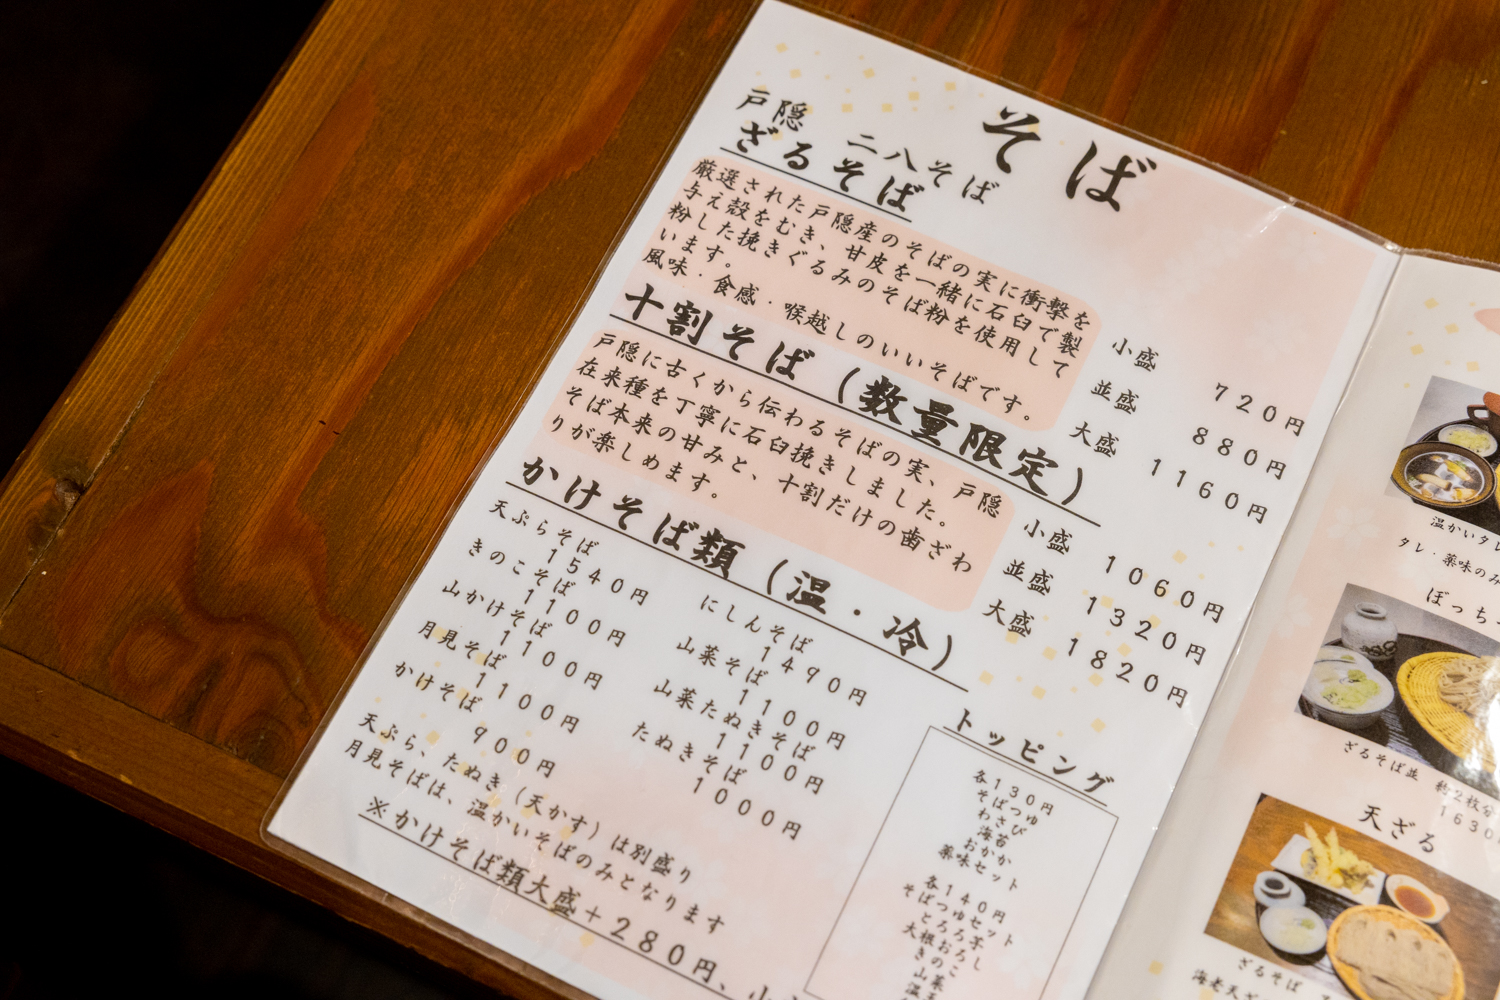 そば
戸隠 二八そば
ざるそば
厳選された戸隠産のそばの実に衝撃を
与え殻をむき、甘皮を一緒に石臼で製
粉した挽きぐるみのそば粉を使用して
います。
風味・食感・喉越しのいいそばです。
小盛 720円
並盛 880円
大盛 1160円
十割そば(数量限定)
戸隠に古くから伝わるそばの実、戸隠
在来種を丁寧に石臼挽きしました。
そば本来の甘みと、十割だけの歯ざわ
りが楽しめます。
小盛 1060円
並盛 1320円
大盛 1820円
かけそば類(温・冷)
天ぷらそば
1540円
きのこそば
1100円
山かけそば
1100円
月見そば
1100円
かけそば
900円
にしんそば
1490円
山菜そば
1100円
山菜たぬきそば
1100円
たぬきそば
1000円
天ぷら、たぬき(天かす)は別盛り
月見そばは、温かいそばのみとなります
※かけそば類大盛+280円、小
トッピング
各130円
そばつゆ
わさび
海苔
おかか
薬味セット
各140円
そばつゆセット
とろろ芋
大根おろし
きのこ
山菜
温かいタレ
タレ・薬味のみ
ぼっち
ざるそば並 約2枚分
1630
天ざる
ざるそば
海老天ざ